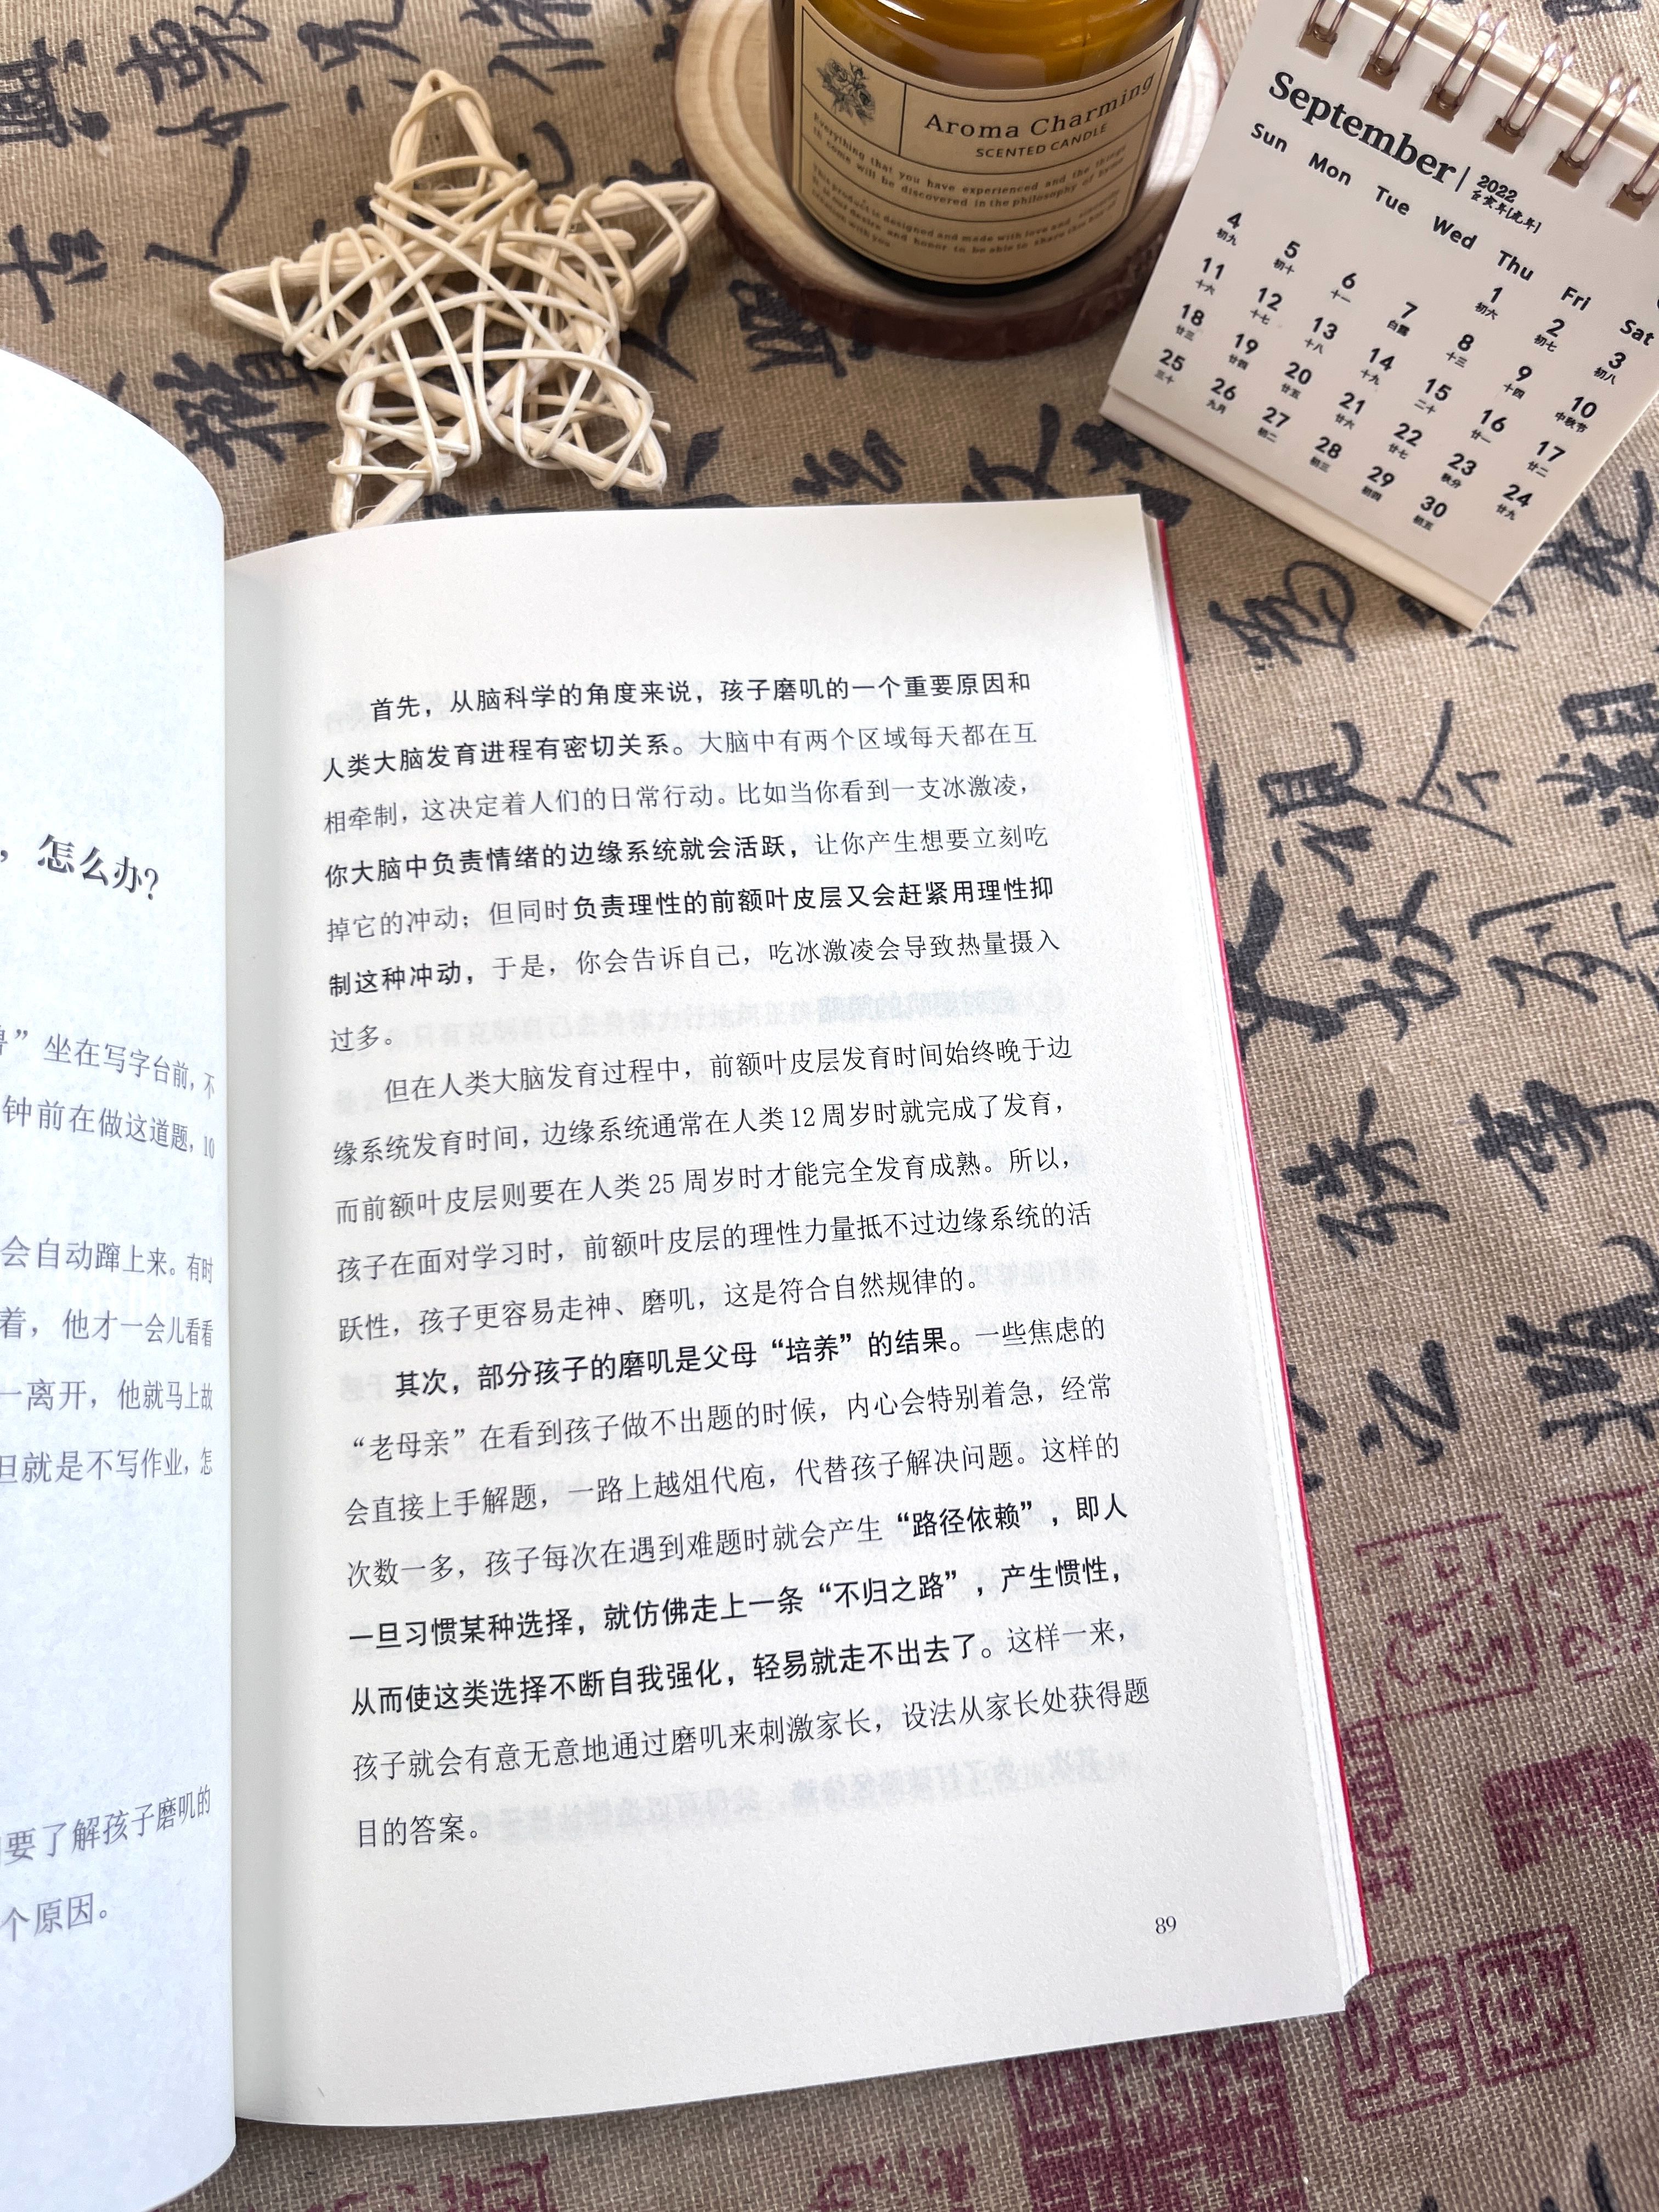 Aroma Charming
SCENTED CANDLE
Everything that you have experienced and the things
to come will be discovered in the philosophy of
This product is designed and made with love and sincerity
It is our desire and honor to be able to share this
with you
September 2022
Sun Mon Tue Wed Thu Fri Sat
1 2 3
初六 初七 初八
4 5 6 7 8 9 10
初九 初十 十一 白露 十三 十四 中秋节
11 12 13 14 15 16 17
十六 十七 十八 十九 二十 廿一 廿二
18 19 20 21 22 23 24
廿三 廿四 廿五 廿六 廿七 秋分 廿九
25 26 27 28 29 30
三十 九月 初二 初三 初四 初五
，怎么办？
”坐在写字台前，不
钟前在做这道题，10
会自动蹿上来。有时
着，他才一会儿看看
一离开，他就马上故
但就是不写作业，怎
要了解孩子磨叽的
个原因。
首先，从脑科学的角度来说，孩子磨叽的一个重要原因和
人类大脑发育进程有密切关系。大脑中有两个区域每天都在互
相牵制，这决定着人们的日常行动。比如当你看到一支冰激凌，
你大脑中负责情绪的边缘系统就会活跃，让你产生想要立刻吃
掉它的冲动；但同时负责理性的前额叶皮层又会赶紧用理性抑
制这种冲动，于是，你会告诉自己，吃冰激凌会导致热量摄入
过多。
但在人类大脑发育过程中，前额叶皮层发育时间始终晚于边
缘系统发育时间，边缘系统通常在人类 12 周岁时就完成了发育，
而前额叶皮层则要在人类 25 周岁时才能完全发育成熟。所以，
孩子在面对学习时，前额叶皮层的理性力量抵不过边缘系统的活
跃性，孩子更容易走神、磨叽，这是符合自然规律的。
其次，部分孩子的磨叽是父母“培养”的结果。一些焦虑的
“老母亲”在看到孩子做不出题的时候，内心会特别着急，经常
会直接上手解题，一路上越俎代庖，代替孩子解决问题。这样的
次数一多，孩子每次在遇到难题时就会产生“路径依赖”，即人
一旦习惯某种选择，就仿佛走上一条“不归之路”，产生惯性，
从而使这类选择不断自我强化，轻易就走不出去了。这样一来，
孩子就会有意无意地通过磨叽来刺激家长，设法从家长处获得题
目的答案。
89